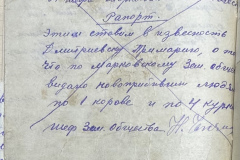 Рапорт.
Этим ставом в известность
Дмитриевску Примарию, о том
что по Марковскому Зем. общес
выдано новоприбывшим людям
по 1 корове и по 4 курицы
шеф Зем. общества